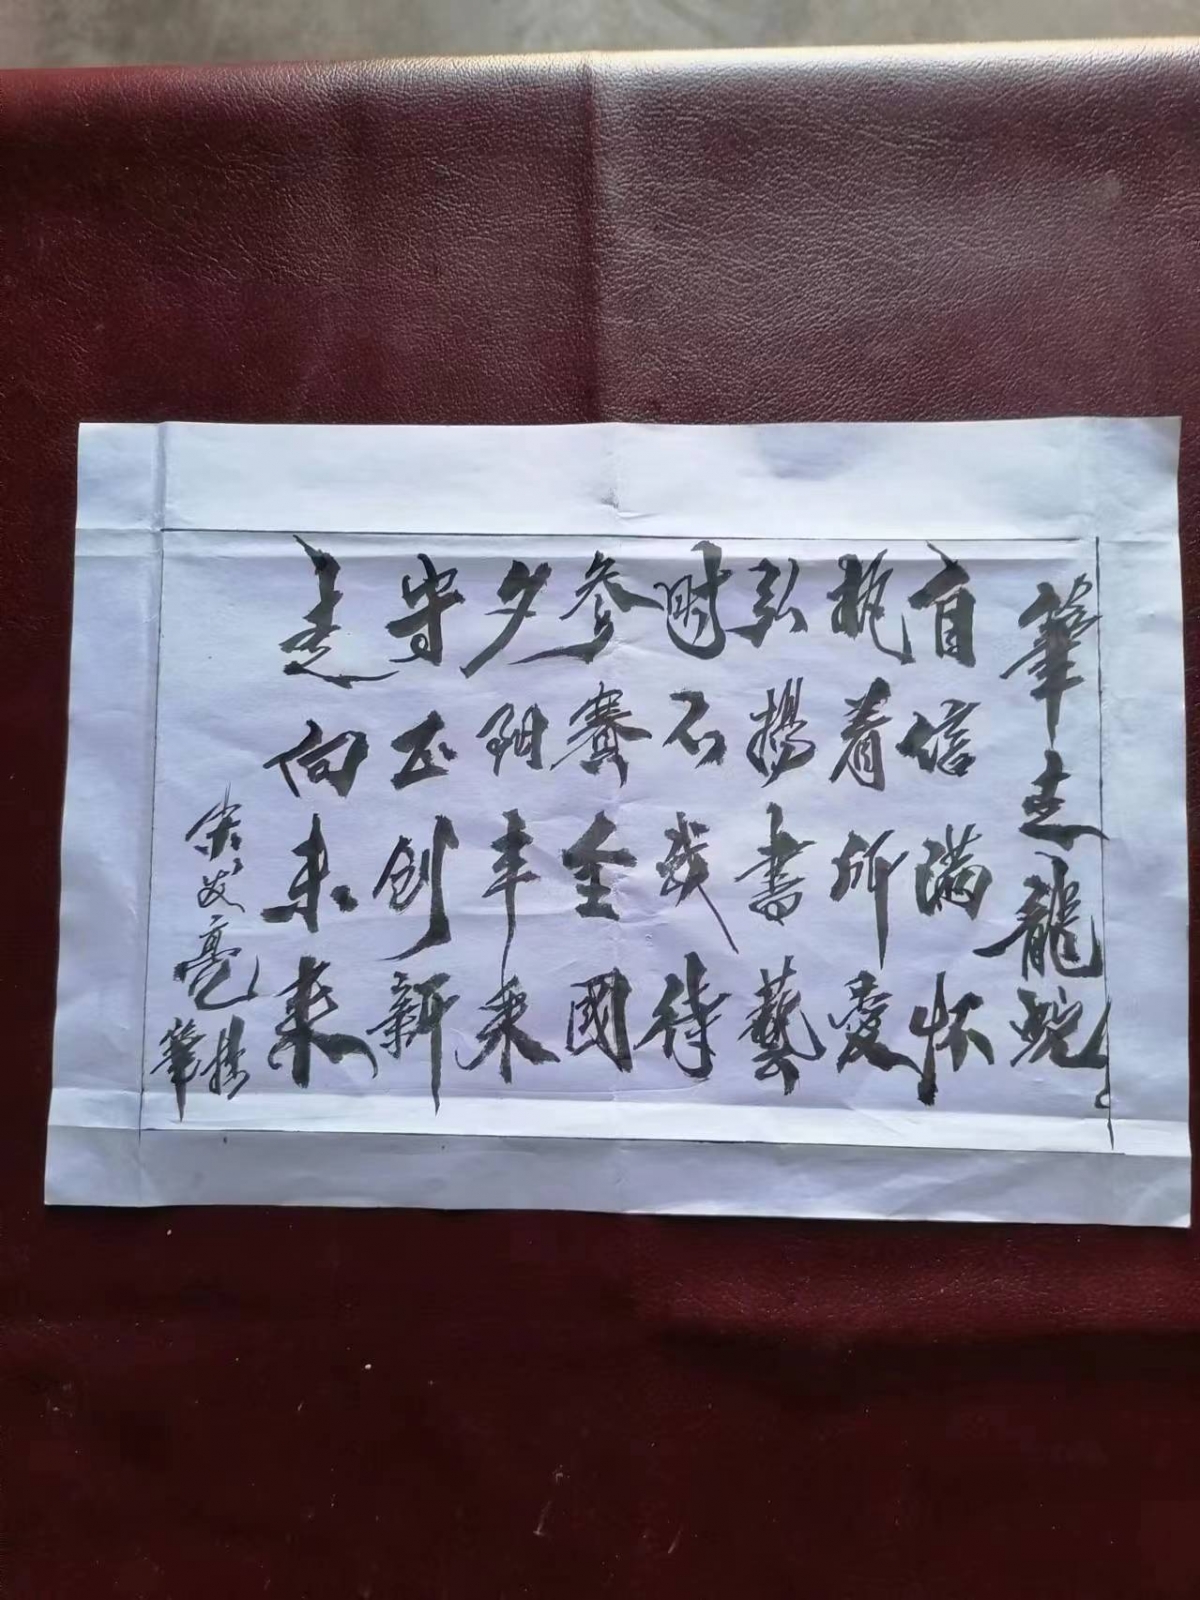 筆走龍蛇
自信满怀
执着所爱
弘揚書藝
时不我待
参賽全國
夕阳丰采
守正创新
走向未来
宋发亮
挂筆